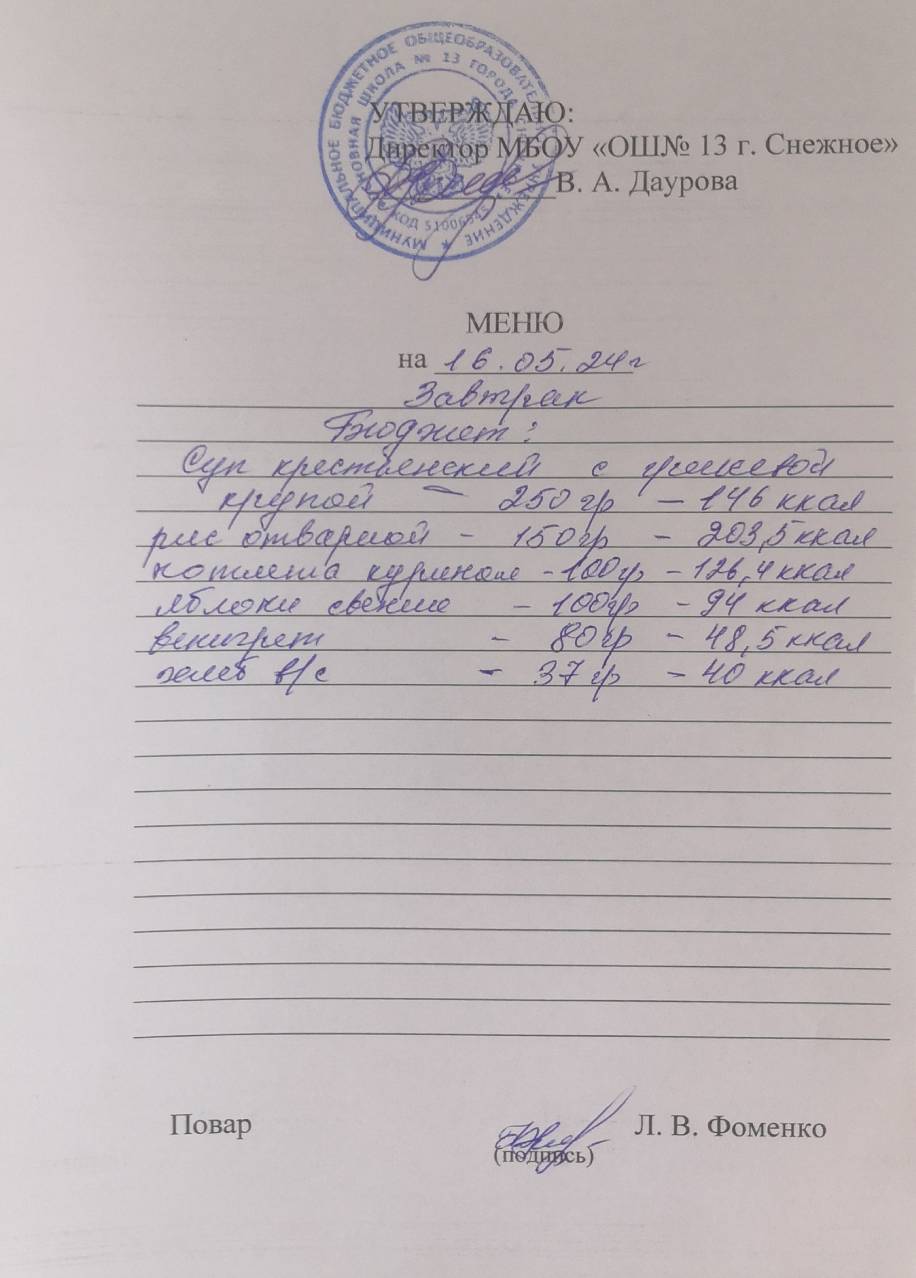 МУНИЦИПАЛЬНОЕ БЮДЖЕТНОЕ ОБЩЕОБРАЗОВАТЕЛЬ УЧРЕЖДЕНИЕ
ШКОЛА № 13 ГОРОДА
КОД 51006545
УТВЕРЖДАЮ:
Директор МБОУ «ОШ№ 13 г. Снежное»
В. А. Даурова
МЕНЮ
на 16.05.24г
Завтрак
Бюджет:
Суп крестьянский с
крупой - 250 гр - 146 ккал
рис отварной - 150гр - 203,5 ккал
котлета куриная - 100гр - 126,4 ккал
яблоки свежие - 100гр - 94 ккал
венигрет - 80 гр - 48,5 ккал
хлеб в/с - 37 гр - 40 ккал
Повар Л. В. Фоменко
(подпись)